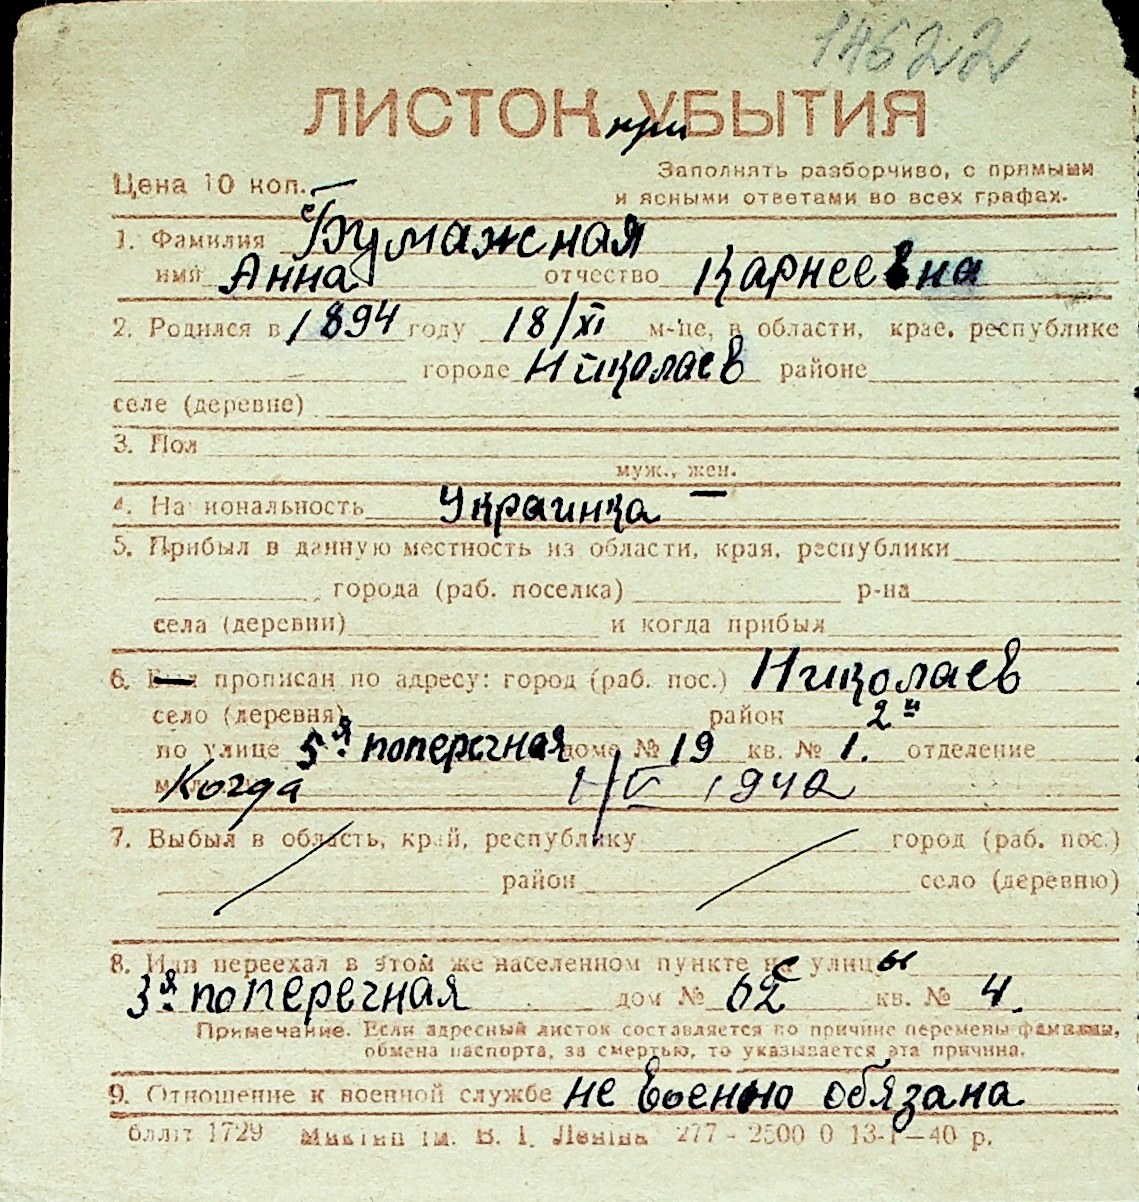 14622
ЛИСТОК при УБЫТИЯ
Цена 10 коп.
Заполнять разборчиво, с прямыми
и ясными ответами во всех графах.
1. Фамилия Бумажная
имя Анна отчество Карнеевна
2. Родился в 1894 году 18/XI м-це, в области, крае, республике
городе Николаев районе
селе (деревне)
3. Пол
муж., жен.
4. На иональность Украинка —
5. Прибыл в данную местность из области, края, республики
города (раб. поселка) р-на
села (деревни) и когда прибыл
6. прописан по адресу: город (раб. пос.) Николаев
село (деревня) район 2й
по улице 5я поперечная доме № 19 кв. № 1. отделение
Когда 1942
7. Выбыл в область, край, республику город (раб. пос.)
район село (деревню)
8. Или переехал в этом же населенном пункте с улицы
3я поперечная дом № 62 кв. № 4.
Примечание. Если адресный листок составляется по причине перемены фамилии,
обмена паспорта, за смертью, то указывается эта причина.
9. Отношение к военной службе не военно обязана
1729 ім. В. І. Леніна 277 - 2500 0 13-I—40 р.